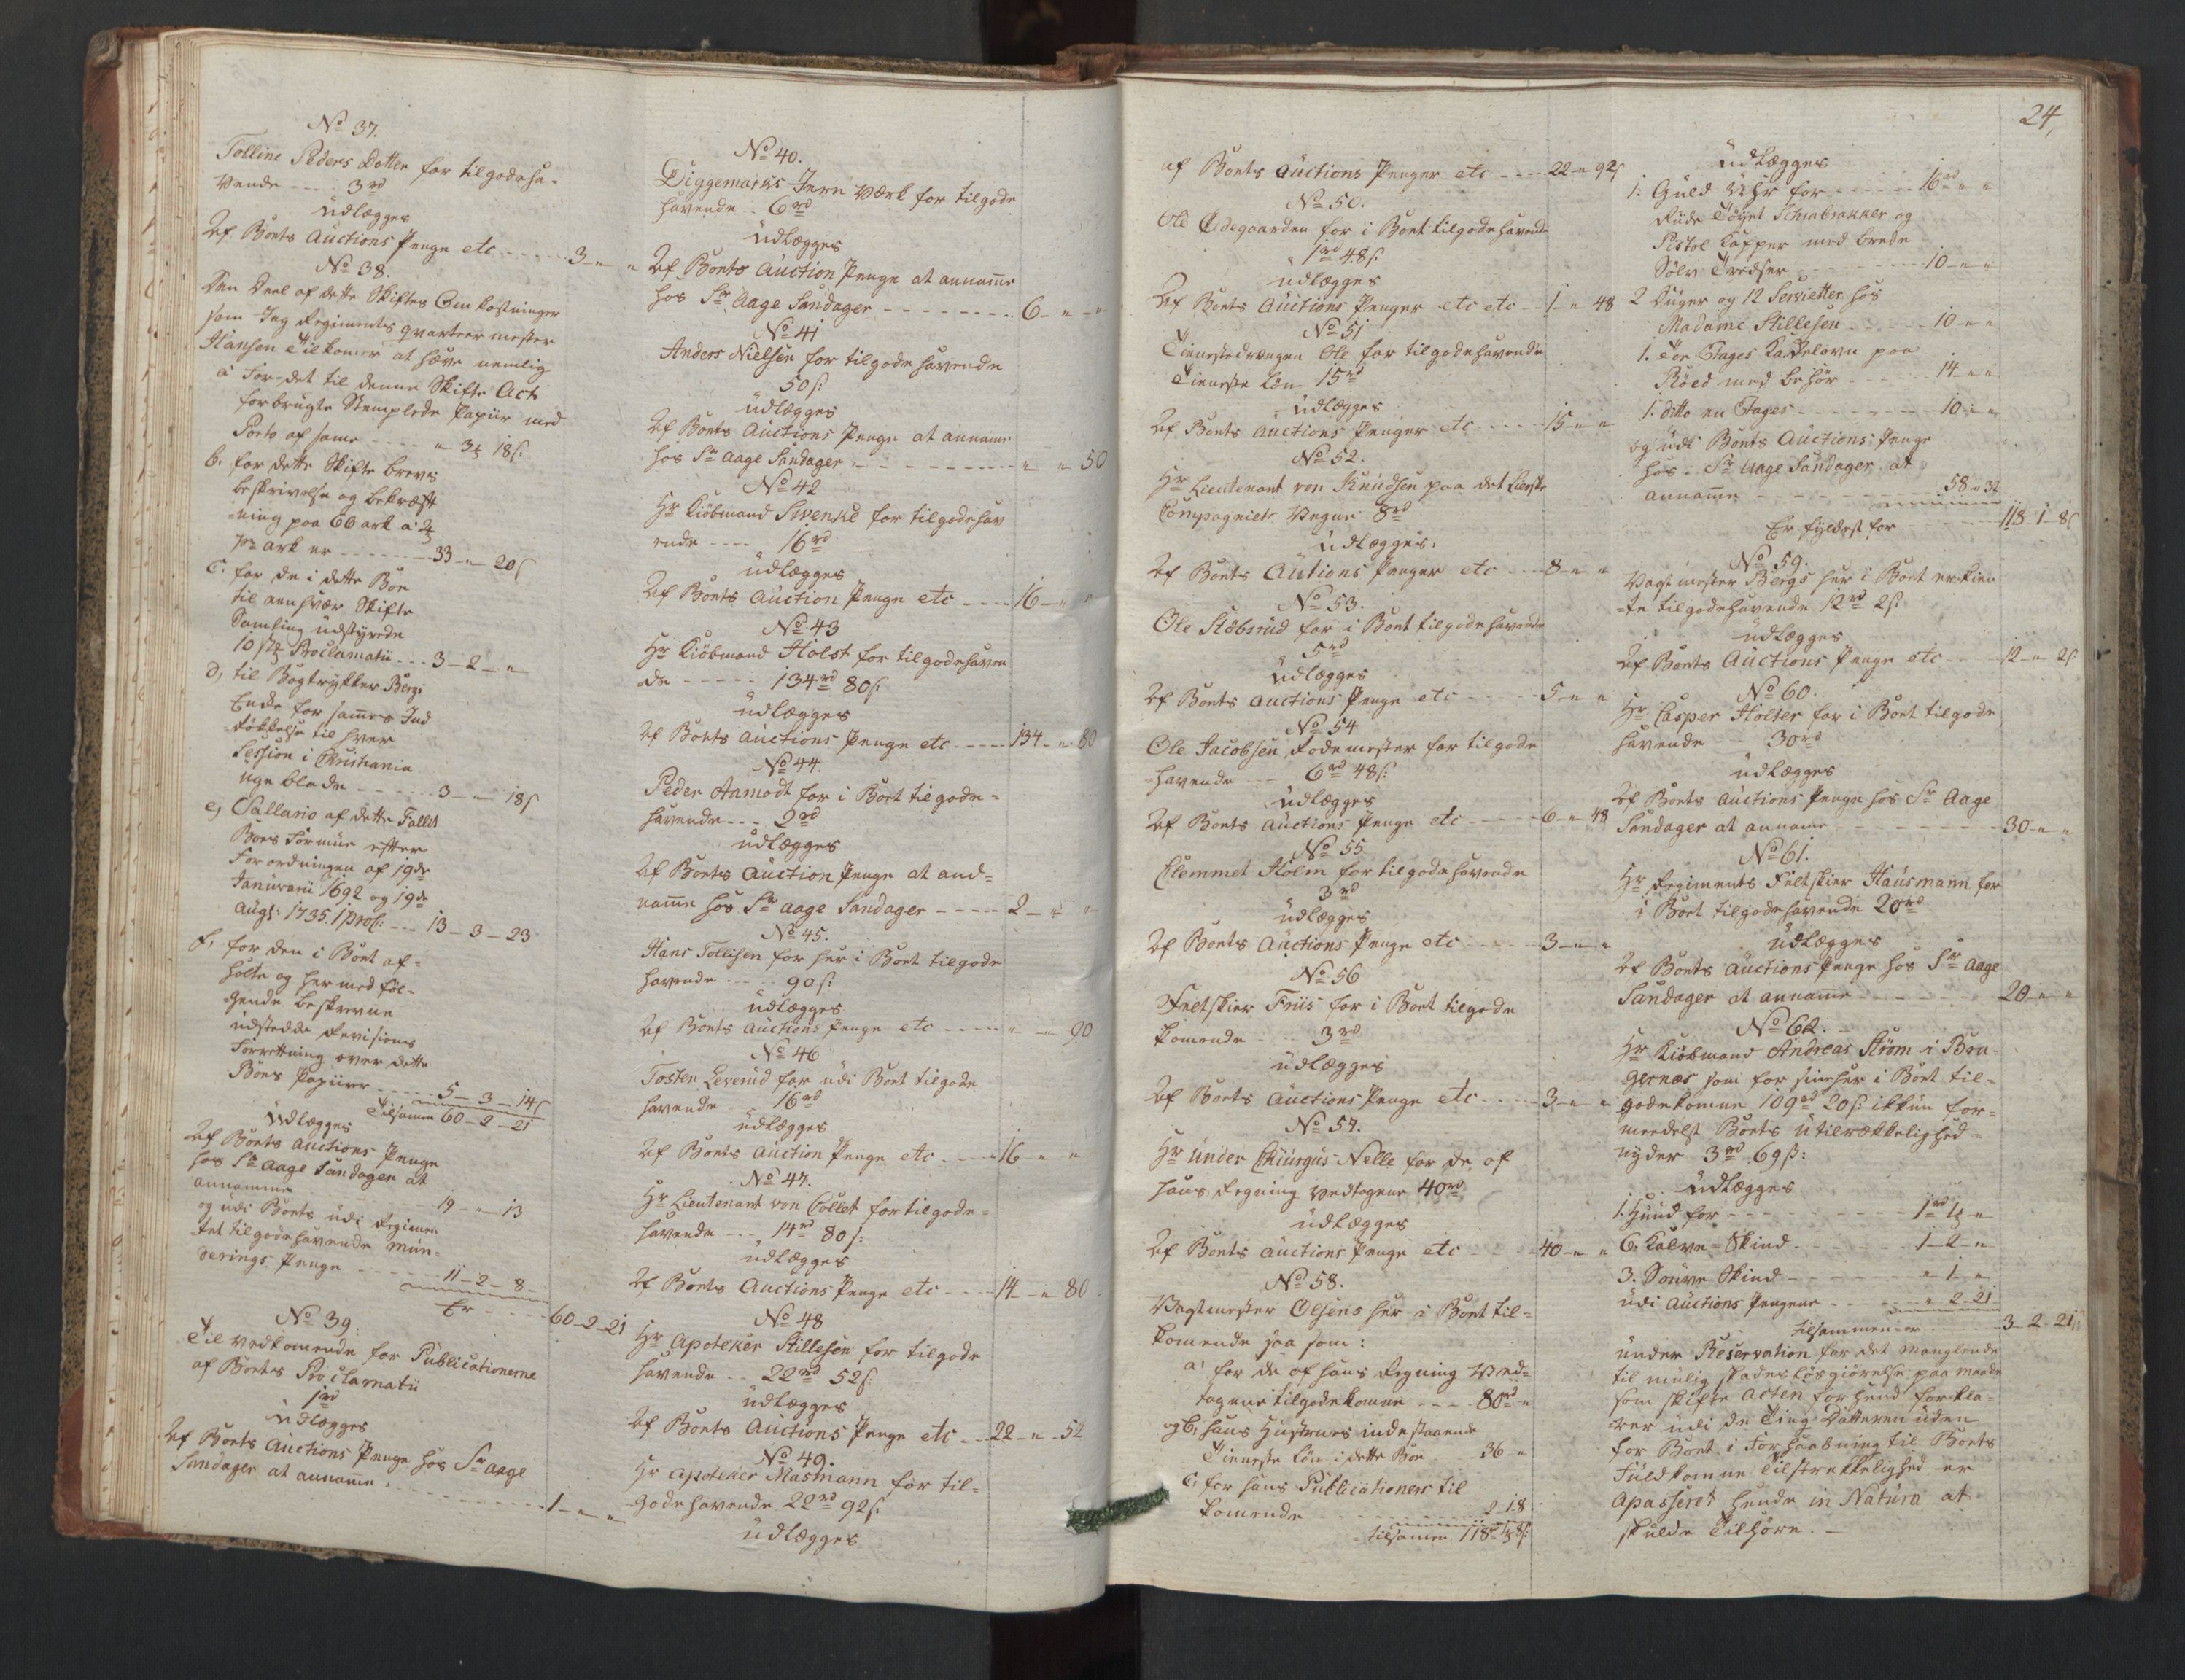 No 37.
Tolline Peders Dotter for tilgodeha-
vende - - - 3 rd
udlægges
Af Boets Auctions Penge etc - - - - - 3 - " - "
No 38.
Den Deel af dette Skiftes Omkostninger
som Jeg Regiments qvarteermester
Hansen Tilkomer at hæve nemlig
a For det til denne Skifte Act
forbrugte Stemplede Papiir med
Porto af same - - - - " 3 18 s:
b. for dette Skifte brevs
beskrivelse og bekræft
-ning paa 66 ark a 2
pr ark er - - - - - - 33 - " - 20 s
C. for de i dette Boe
til een hvær Skifte
Samling udstyrede
10 st Proclamatii - - - 3 - 2 - "
d, til Bogtrykker Bergs
Enke for sammes Ind
-rykkelse til hver
Session i Christiania
uge blade - - - - - 3 - " - 18 s
e, Sallario af dette Fallit
Boes Formue efter
Forordningen af 19de
Januarii 1692 og 19de
Augs: 1735. 1 proC: - - - 13 - 3 - 23
f, for den i Boet af-
holte og her med føl-
-gende beskrevne
udstedde Revisions
Forretning over dette
Boes Papiirer - - - - 5 - 3 - 14 s
Tilsamen 60 - 2 - 21
Udlægges
Af Boets Auctions Penge
hos Sr Aage Sandager at
annamme - - - - 19 - " - 13
og udi Boets udi Regimen
-tet tilgodehavende Mun-
derings Penge - - - - - - 11 - 2 - 8
Er - - - - 60 - 2 - 21
No 39.
Til vedkomende for Publicationerne
af Boets Proclamatii
1 rd
Udlægges
Af Boets Auctions Penge hos Sr Aage
Sandager at anname - - - - - - - - 1 - " - "
No 40.
Diggemarks Jern Værk for tilgode
havende - 6 rd
udlægges
Af Boets Auction Penge at anname
hos Sr Aage Sandager - - - - - - - - 6 - " - "
No 41
Anders Nielsen for tilgode havende
50 s:
udlægges
Af Boets Auctions Penge at anname
hos Sr Aage Sandager - - - - - - - - - " - " 50
No 42
Hr Kiöbmand Swenke for tilgodehav
ende - - - - 16 rd
udlægges
Af Boets Auction Penge etc - - - - 16 - " - "
No 43
Hr Kiöbmand Holst for tilgodehaven
de - - - - - 134 rd 80 s:
udlægges
Af Boets Auctions Penge etc - - - - 134 - " 80
No 44.
Peder Aamodt for i Boet tilgode-
havende - - - 2 rd
udlægges
Af Boets Auction Penge at and-
namme hos Sr Aage Sandager - - - - - 2 - " - "
No 45.
Hans Tollisen for her i Boet tilgode
havende - - - - 90 s:
udlægges
Af Boets Auctions Penge etc - - - - - " - " 90
No 46
Tosten Leverud for udi Boet tilgode
havende - - - 16 rd
udlægges
Af Boets Auction Penge etc - - - - - 16 - " - "
No 47.
Hr Lieutenant von Collet for tilgode-
havende - - - 14 rd 80 s:
udlægges
Af Boets Auctions Penge etc - - - - 14 - " 80
No 48
Hr Apoteker Stillesen for tilgode
havende - - 22 rd 52 s:
udlægges
Af Boets Auctions Penge etc - - 22 - " - 52
No 49.
Hr Apoteker Masmann for til-
godehavende 22 rd 92 s:
udlægges
24,
af Boets Auctions Penger etc - - - - 22 - " 92 s
No 50.
Ole Ødegaarden for i Boet tilgodehavende
1 rd 48 s:
udlægges
Af Boets Auctions Penger etc etc - - 1 - " 48
No 51
Tienestedrengen Ole for tilgodehavende
Tieneste Løn 15 rd
udlægges
Af Boets Auctions Penger etc - - - - - 15 - " "
No 52.
Hr Lieutenant von Knudsen paa det Lierske
Compagniets Vegne 8 rd
udlægges.
Af Boets Autions Penger etc - - - 8 - " "
No 53.
Ole Stöbsrud for i Boet tilgodehavende
5 rd
udlægges
Af Boets Auctions Penge etc - - - - - 5 - " "
No 54
Ole Jacobsen Rodemester for tilgode
-havende - - 6 rd 48 s:
udlægges
Af Boets Auctions Penge etc - - - - - 6 - " 48
No 55
Clemmet Holm for tilgodehavende
3 rd
udlægges
Af Boets Auctions Penge etc - - - - - 3 - " "
No 56
Feltskier Friis for i Boet tilgode
komende - - 3 rd
udlægges
Af Boets Auctions Penge etc - - - - 3 - " "
No 57.
Hr Under Chiurgus Nelle for de af
hans Regning vedtagne 40 rd
udlægges
Af Boets Auctions Penge etc - - - - - 40 - " "
No 58.
Vagtmester Olsens her i Boet til-
komende saa som:
a, for de af hans Regning Ved-
tagne tilgodekomne - - - - 80 rd "
og b, hans Hustrues indestaaende
Tieneste Løn i dette Boe - - 36 - "
C, for hans Publicationers til
komende - - - - - - - - - 2 18
tilsamen 118 rd 1 8 s:
udlægges
1. Guld Uhr for - - - - - - 16 rd " "
Røde Töyet Schrabrakker og
Pistol Kapper med brede
Sølv Tredser - - - - - - - - 10 - " "
2 Duger og 12 Servietter hos
Madame Stillesen - - - - - 10 - " "
1. Toe Etages Kakkelovn paa
Röed med behör - - - - - 14 - " "
1. ditto en Etages - - - - - - - 10 - " "
og udi Boets Auctions Penge
hos Sr Aage Sandager at
anname - - - - - - - - - - 58 " 32
Er fyldest for - - - - - 118 - 1 - 8 s
No 59.
Vagtmester Bergs her i Boet erkien
-te tilgodehavende 12 rd 2 s:
udlægges
Af Boets Auctions Penge etc - - - 12 - " 2 s
No 60.
Hr Casper Holter for i Boet tilgode
havende - - 30 rd
udlægges
Af Boets Auctions Penge hos Sr Aage
Sandager at anname - - - - - - - - 30 - " "
No 61.
Hr Regiments Feltskier Hausmann for
i Boet tilgodehavende 20 rd
udlægges
Af Boets Auctions Penge hos Sr Aage
Sandager at anname - - - - - - - 20 - " "
No 62.
Hr Kiöbmand Andreas Ström i Bra-
gernæs som for sine her i Boet til-
godekomne 109 rd 20 s: ikkun for-
mendelst Boets Utilrækkelighed
nyder 3 rd 69 s:
udlægges
1. Hund for - - - - - - - - - 1 rd 1 - "
6. Kalve-Skind - - - - - - 1 - 2 - "
3. Souve Skind - - - - - - " 1 - "
udi Auctions Pengene - - - - - " 2 - 21
tilsammen er - - - - 3 - 2 - 21:
under Reservation for det manglende
til mulig skadeslösgiörelse paa maade
som skifte Acten forhend forkla-
-rer udi de Ting Datteren uden
for Boet i Forhaabning til Boets
Fuldkomne Tilstrekkelighed er
apasseret hende in Natura at
skulde Tilhöre. -